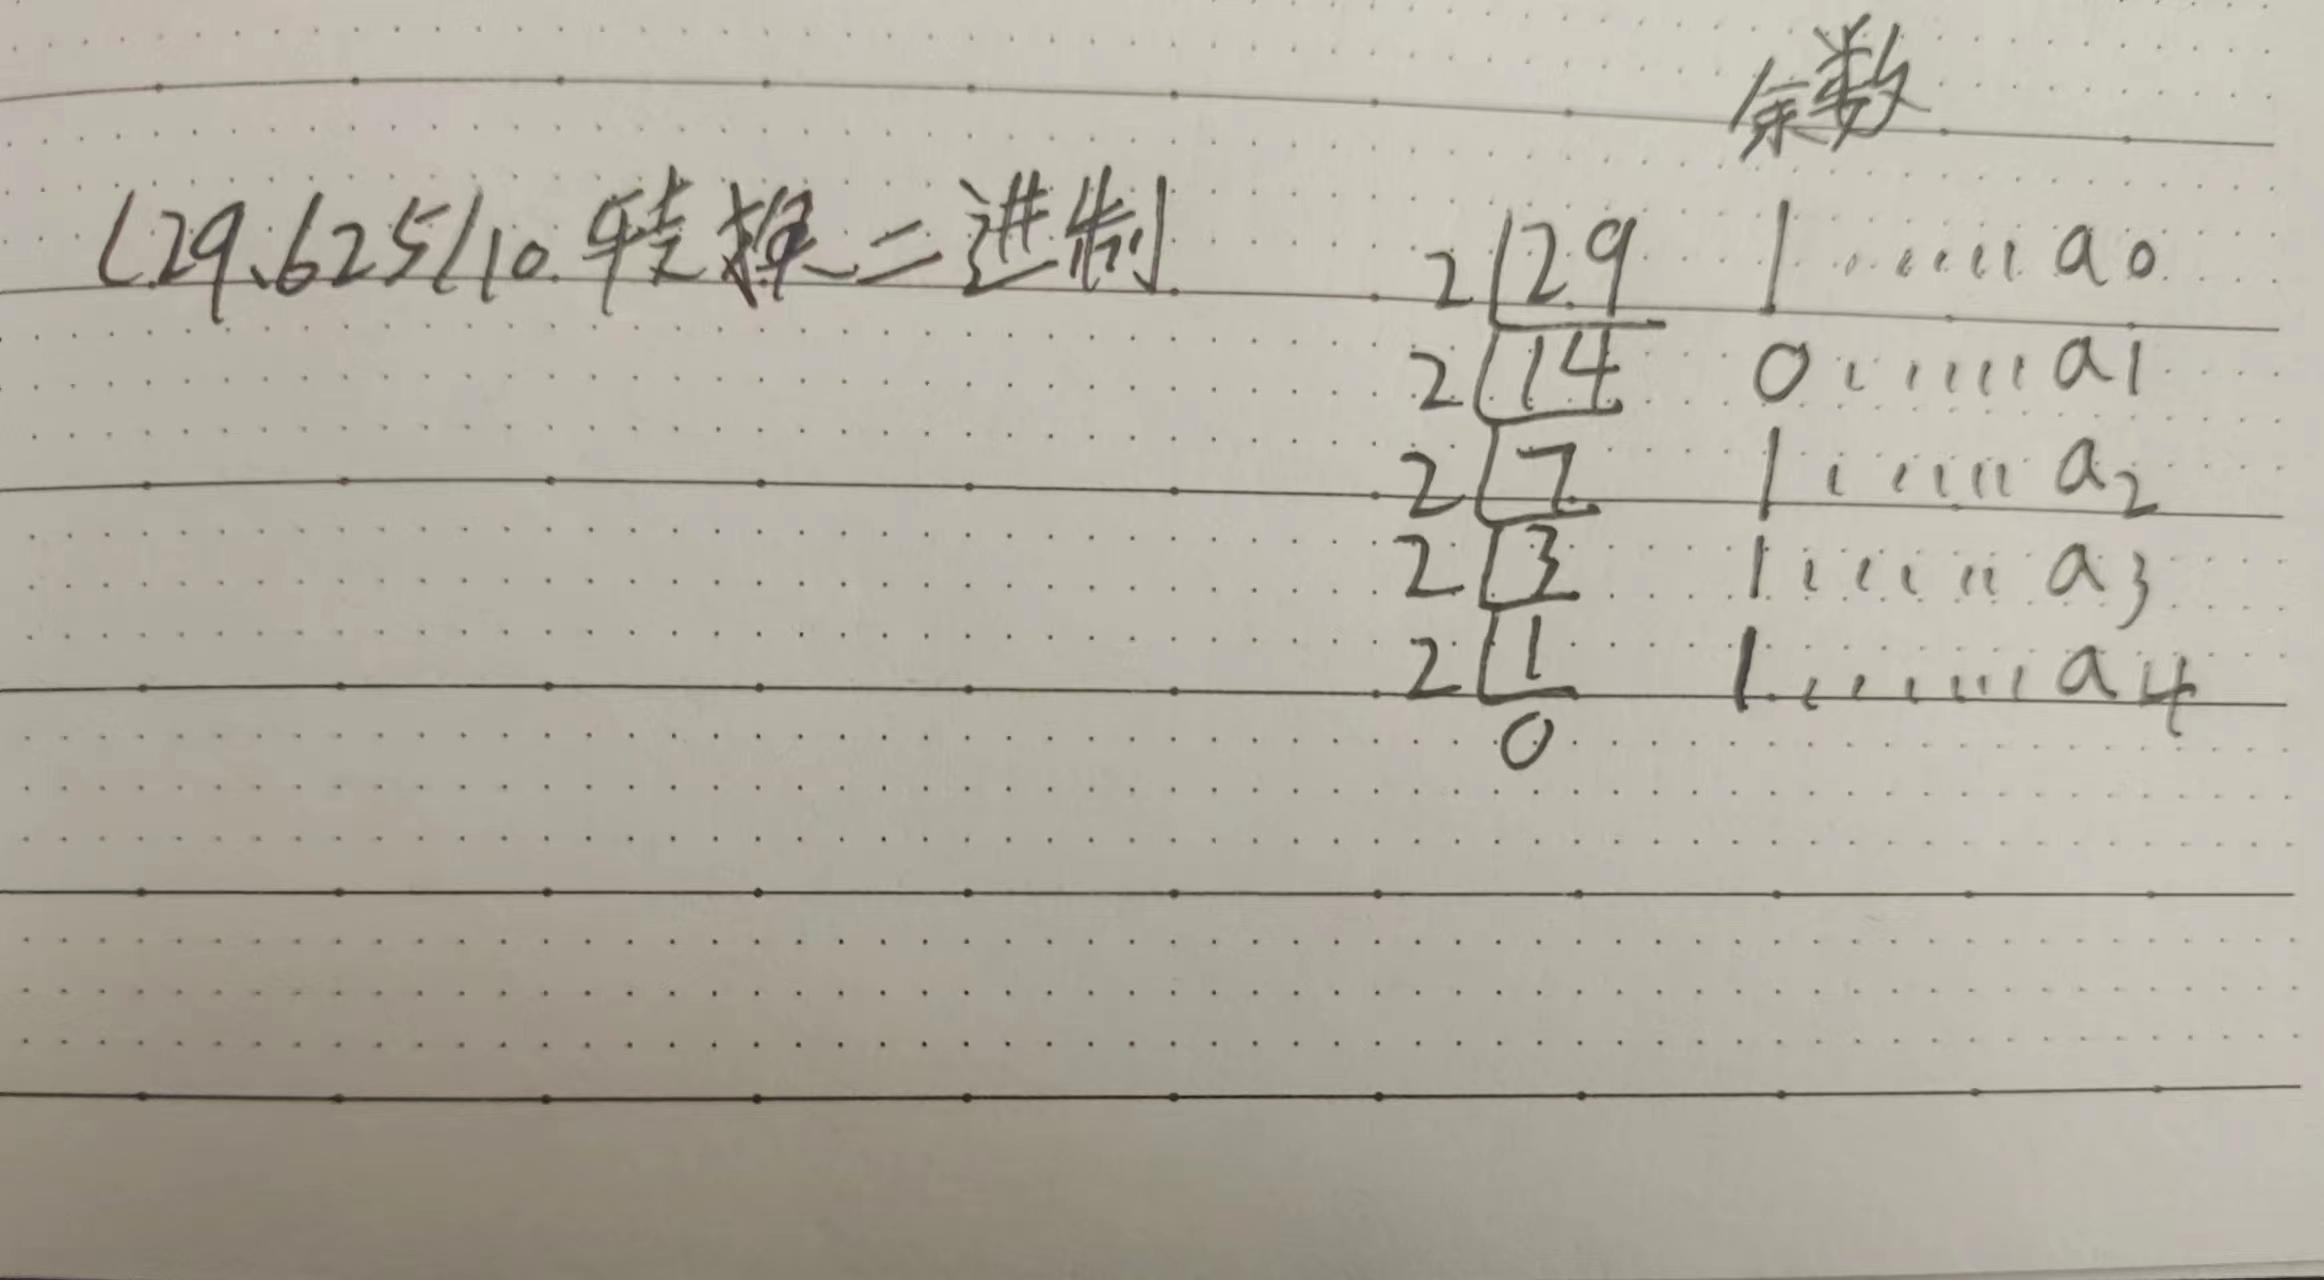 余数
(29.625)10 转换二进制
2 29 1 ······ a0
2 14 0 ······ a1
2 7 1 ······ a2
2 3 1 ······ a3
2 1 1 ······ a4
0